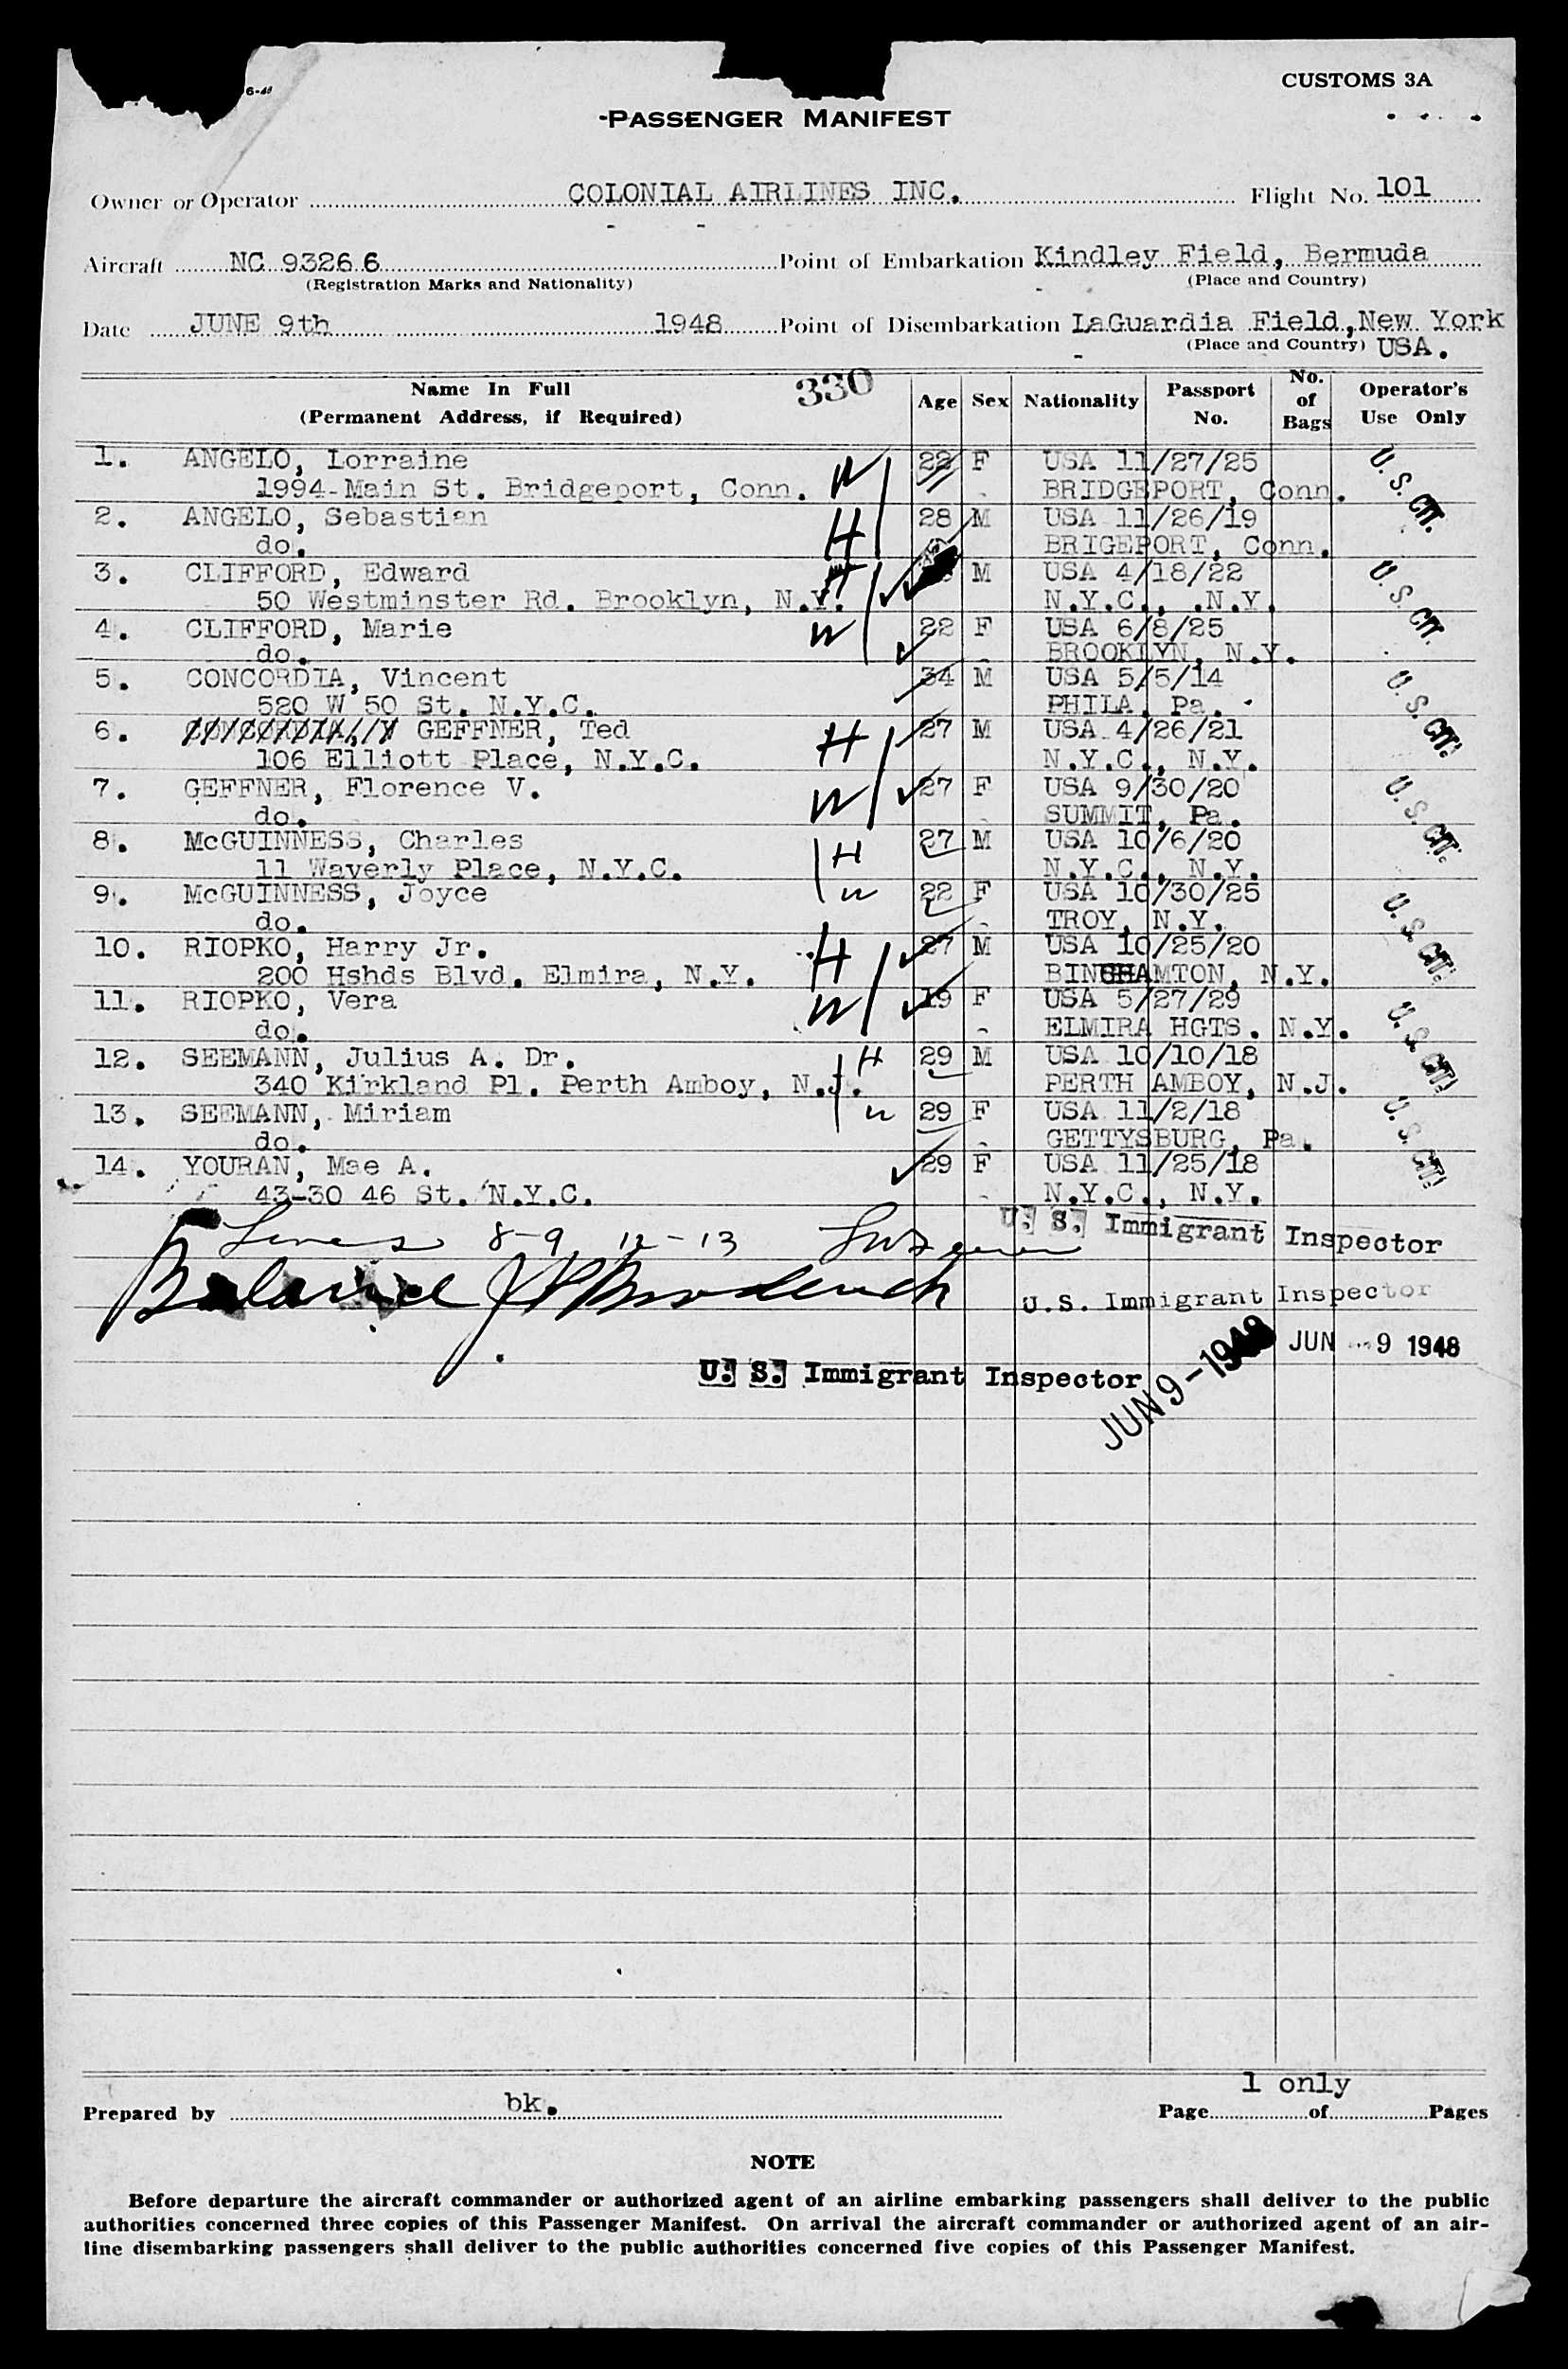 6-48
CUSTOMS 3A
PASSENGER MANIFEST
Owner or Operator COLONIAL AIRLINES INC. Flight No. 101
Aircraft NC 93266 Point of Embarkation Kindley Field, Bermuda
(Registration Marks and Nationality) (Place and Country)
Date JUNE 9th 1948 Point of Disembarkation LaGuardia Field, New York
(Place and Country) USA.
Name In Full 330 Age Sex Nationality Passport No. of Operator's
(Permanent Address, if Required) No. Bags Use Only
1. ANGELO, Lorraine W 22 F USA 11/27/25 U. S. CIT.
1994-Main St. Bridgeport, Conn. BRIDGEPORT, Conn.
2. ANGELO, Sebastian H 28 M USA 11/26/19
do. BRIGEPORT, Conn.
3. CLIFFORD, Edward H M USA 4/18/22 U. S. CIT.
50 Westminster Rd. Brooklyn, N.Y. N.Y.C., .N.Y.
4. CLIFFORD, Marie W 22 F USA 6/8/25
do. BROOKLYN, N.Y.
5. CONCORDIA, Vincent 34 M USA 5/5/14 U. S. CIT.
520 W 50 St. N.Y.C. PHILA, Pa.
6. GEFFNER, Ted H 27 M USA 4/26/21
106 Elliott Place, N.Y.C. N.Y.C., N.Y.
7. GEFFNER, Florence V. W 27 F USA 9/30/20 U. S. CIT.
do. SUMMIT, Pa.
8. McGUINNESS, Charles H 27 M USA 10/6/20
11 Waverly Place, N.Y.C. N.Y.C., N.Y.
9. McGUINNESS, Joyce W 22 F USA 10/30/25 U. S. CIT.
do. TROY, N.Y.
10. RIOPKO, Harry Jr. H 27 M USA 10/25/20
200 Hshds Blvd. Elmira, N.Y. BINGHAMTON, N.Y.
11. RIOPKO, Vera W 19 F USA 5/27/29 U. S. CIT.
do. ELMIRA HGTS. N.Y.
12. SEEMANN, Julius A. Dr. H 29 M USA 10/10/18
340 Kirkland Pl. Perth Amboy, N.J. PERTH AMBOY, N.J.
13. SEEMANN, Miriam W 29 F USA 11/2/18 U. S. CIT.
do. GETTYSBURG, Pa.
14. YOURAN, Mae A. 29 F USA 11/25/18
43-30 46 St. N.Y.C. N.Y.C., N.Y.
Lines 8-9, 12-13 U. S. Immigrant Inspector
Balance U.S. Immigrant Inspector
JUN 9 1948
U. S. Immigrant Inspector
JUN 9 - 1948
1 only
Prepared by bk. Page of Pages
NOTE
Before departure the aircraft commander or authorized agent of an airline embarking passengers shall deliver to the public
authorities concerned three copies of this Passenger Manifest. On arrival the aircraft commander or authorized agent of an air-
line disembarking passengers shall deliver to the public authorities concerned five copies of this Passenger Manifest.